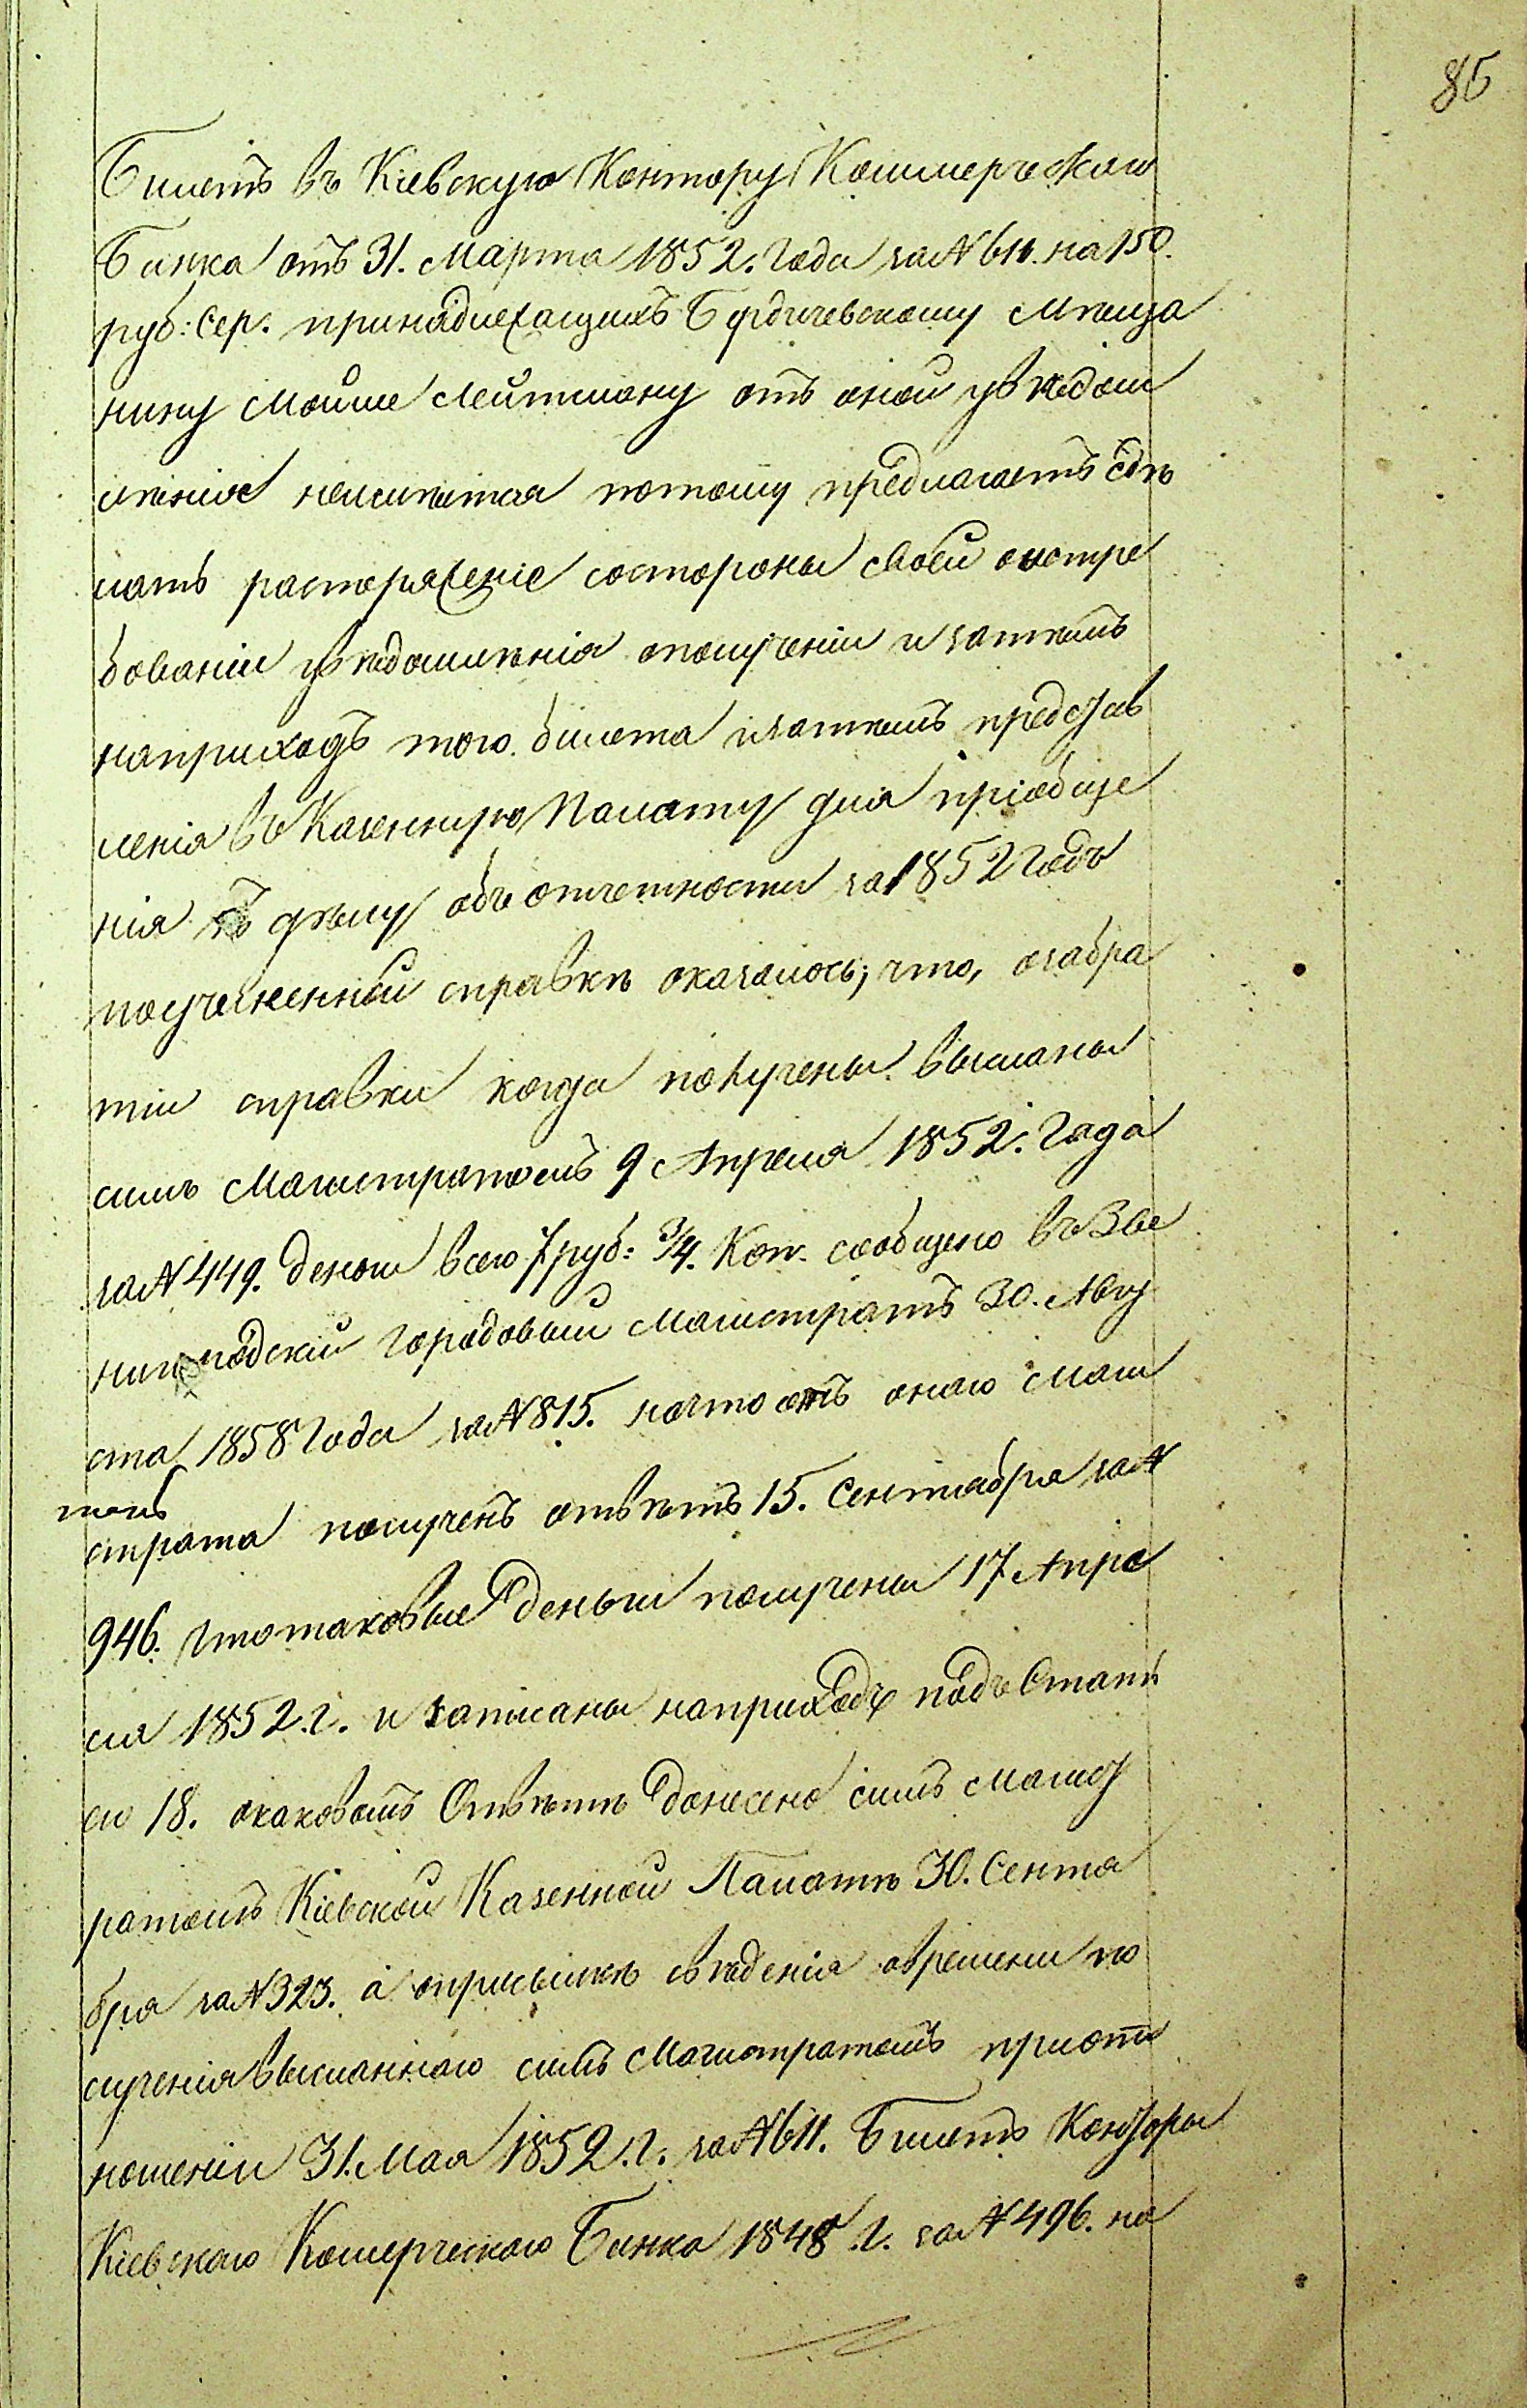 85
Билетъ въ Кіевскую Контору Коммерческаго
Банка отъ 31. Марта 1852. Года за N 611. на 150.
руб: Сер. принадлежащихъ Бердичевскому Мѣща
нину Мошке Лейтману отъ оной увѣдом
лѣнія неимѣется потому предлагаетъ сдѣ
лать распоряженіе состороны своей о истре
бованіи увѣдомлѣнія ополученіи и записѣ
наприходъ того билета и затѣмъ представ
ленія въ Казенную Палату для пріобще
нія къ дѣлу объ отчетности за 1852 Годъ
поучиненной справкѣ оказалось; что, о забра
тіи справки когда получены высланы
симъ Магистратомъ 9 Апреля 1852. Года
за N 449. денги всего 7 руб: 3/4. Коп. сообщено въ Зве
нигородскій Городовый Магистратъ 30. Авгу
ста 1858 Года за N 815. начто отъ онаго Маги
страта получѣнъ отвѣтъ 15. Сентября за N
946. что таковые деньги получены 17 Апре
ля 1852. г. и записаны наприходъ подъ Стать
ею 18. о каковомъ Отвѣтѣ донесено симъ Магист
ратомъ Кіевской Казенной Палатѣ 30. Сентя
бря за N 323. а оприсылкѣ свѣденія овремени по
лученія высланнаго симъ Магистратомъ приотн
ношеніи 31. Мая 1852. г. за N 611. Билетъ Конторы
Кіевскаго Комерческаго Банка 1848. г. за N 496. на